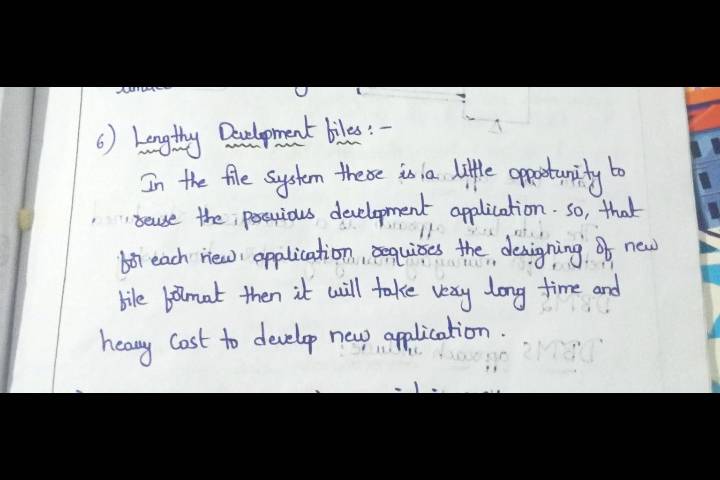 6) Lengthy Development files : -
In the file system there is a little opportunity to
reuse the previous development application. so, that
for each new application requires the designing of new
file format then it will take very long time and
heavy cost to develop new application.